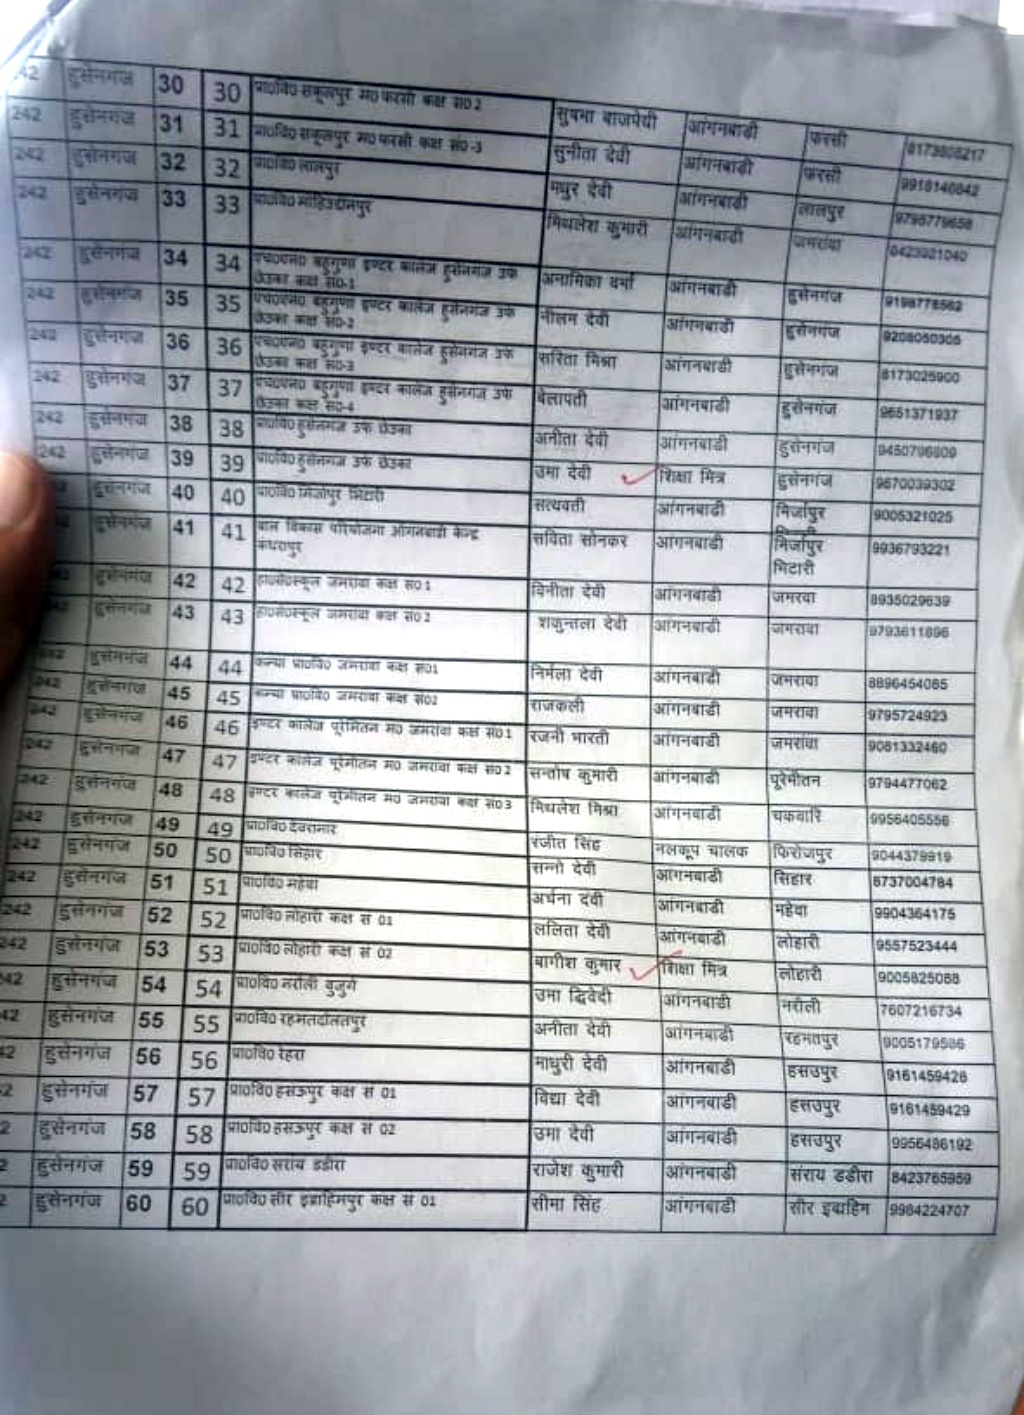 242 हुसेनगंज 30 30 प्रा0वि0 सकूलपुर म0 फरसी कक्ष सं0 2 सुषमा बाजपेयी आंगनबाडी फरसी 8173808217
242 हुसेनगंज 31 31 प्रा0वि0 सकूलपुर म0 फरसी कक्ष सं0-3 सुनीता देवी आंगनबाडी फरसी
242 हुसेनगंज 32 32 प्रा0वि0 लालपुर मधुर देवी आंगनबाडी लालपुर
242 हुसेनगंज 33 33 प्रा0वि0 मिथलेश कुमारी आंगनबाडी जमरावां 8423921040
242 हुसेनगंज 34 34 एच0एन0 बहुगुणा इण्टर कालेज हुसेनगंज उर्फ छेउका कक्ष सं0-1 अनामिका वर्मा आंगनबाडी हुसेनगंज
242 हुसेनगंज 35 35 एच0एन0 बहुगुणा इण्टर कालेज हुसेनगंज उर्फ छेउका कक्ष सं0-2 नीलम देवी आंगनबाडी हुसेनगंज
242 हुसेनगंज 36 36 एच0एन0 बहुगुणा इण्टर कालेज हुसेनगंज उर्फ छेउका कक्ष सं0-3 सरिता मिश्रा आंगनबाडी हुसेनगंज 8173025900
242 हुसेनगंज 37 37 एच0एन0 बहुगुणा इण्टर कालेज हुसेनगंज उर्फ छेउका कक्ष सं0-4 बेलापती आंगनबाडी हुसेनगंज 9651371937
242 हुसेनगंज 38 38 प्रा0वि0 हुसेनगंज उर्फ छेउका अनीता देवी आंगनबाडी हुसेनगंज
242 हुसेनगंज 39 39 प्रा0वि0 हुसेनगंज उर्फ छेउका उमा देवी शिक्षा मित्र हुसेनगंज 9670039302
हुसेनगंज 40 40 प्रा0वि0 मिर्जापुर भिटारी सत्यवती आंगनबाडी मिर्जापुर 9005321025
हुसेनगंज 41 41 बाल विकास परियोजना आंगनबाडी केन्द्र सविता सोनकर आंगनबाडी मिर्जापुर भिटारी 9936793221
हुसेनगंज 42 42 हा0से0स्कूल जमरावा कक्ष सं0 1 विनीता देवी आंगनबाडी जमरवा 8935029639
हुसेनगंज 43 43 हा0से0स्कूल जमरावा कक्ष सं0 2 शकुन्तला देवी आंगनबाडी जमरावा 9793611896
हुसेनगंज 44 44 कन्या प्रा0वि0 जमरावा कक्ष सं01 निर्मला देवी आंगनबाडी जमरावा 8896454085
242 हुसेनगंज 45 45 कन्या प्रा0वि0 जमरावा कक्ष सं02 राजकली आंगनबाडी जमरावा 9795724923
242 हुसेनगंज 46 46 इण्टर कालेज पूरेमितन म0 जमरावा कक्ष सं0 1 रजनी भारती आंगनबाडी जमरांवा 9081332460
242 हुसेनगंज 47 47 इण्टर कालेज पूरेमीतन म0 जमरावा कक्ष सं0 2 सन्तोष कुमारी आंगनबाडी पूरेमीतन 9794477062
242 हुसेनगंज 48 48 इण्टर कालेज पूरेमीतन म0 जमरावा कक्ष सं0 3 मिथलेश मिश्रा आंगनबाडी चकवारि 9956405556
242 हुसेनगंज 49 49 प्रा0वि0 देवरानार रंजीत सिंह नलकूप चालक फिरोजपुर 9044379919
242 हुसेनगंज 50 50 प्रा0वि0 सिहार सन्नो देवी आंगनबाडी सिहार 8737004784
242 हुसेनगंज 51 51 प्रा0वि0 महेवा अर्चना देवी आंगनबाडी महेवा 9904364175
242 हुसेनगंज 52 52 प्रा0वि0 लोहारी कक्ष सं 01 ललिता देवी आंगनबाडी लोहारी 9557523444
242 हुसेनगंज 53 53 प्रा0वि0 लोहारी कक्ष सं 02 बागीश कुमार शिक्षा मित्र लोहारी 9005825088
42 हुसेनगंज 54 54 प्रा0वि0 नरौली बुजुर्ग उमा द्विवेदी आंगनबाडी नरौली 7607216734
42 हुसेनगंज 55 55 प्रा0वि0 रहमतदौलतपुर अनीता देवी आंगनबाडी रहमतपुर 9005179586
2 हुसेनगंज 56 56 प्रा0वि0 रेहरा माधुरी देवी आंगनबाडी हसउपुर 9161459426
2 हुसेनगंज 57 57 प्रा0वि0 हसऊपुर कक्ष सं 01 विद्या देवी आंगनबाडी हसउपुर 9161459429
2 हुसेनगंज 58 58 प्रा0वि0 हसऊपुर कक्ष सं 02 उमा देवी आंगनबाडी हसउपुर 9956486192
2 हुसेनगंज 59 59 प्रा0वि0 सरांय डडीरा राजेश कुमारी आंगनबाडी संराय डडीरा 8423765959
2 हुसेनगंज 60 60 प्रा0वि0 सीर इब्राहिमपुर कक्ष सं 01 सीमा सिंह आंगनबाडी सीर इब्राहिम 9984224707